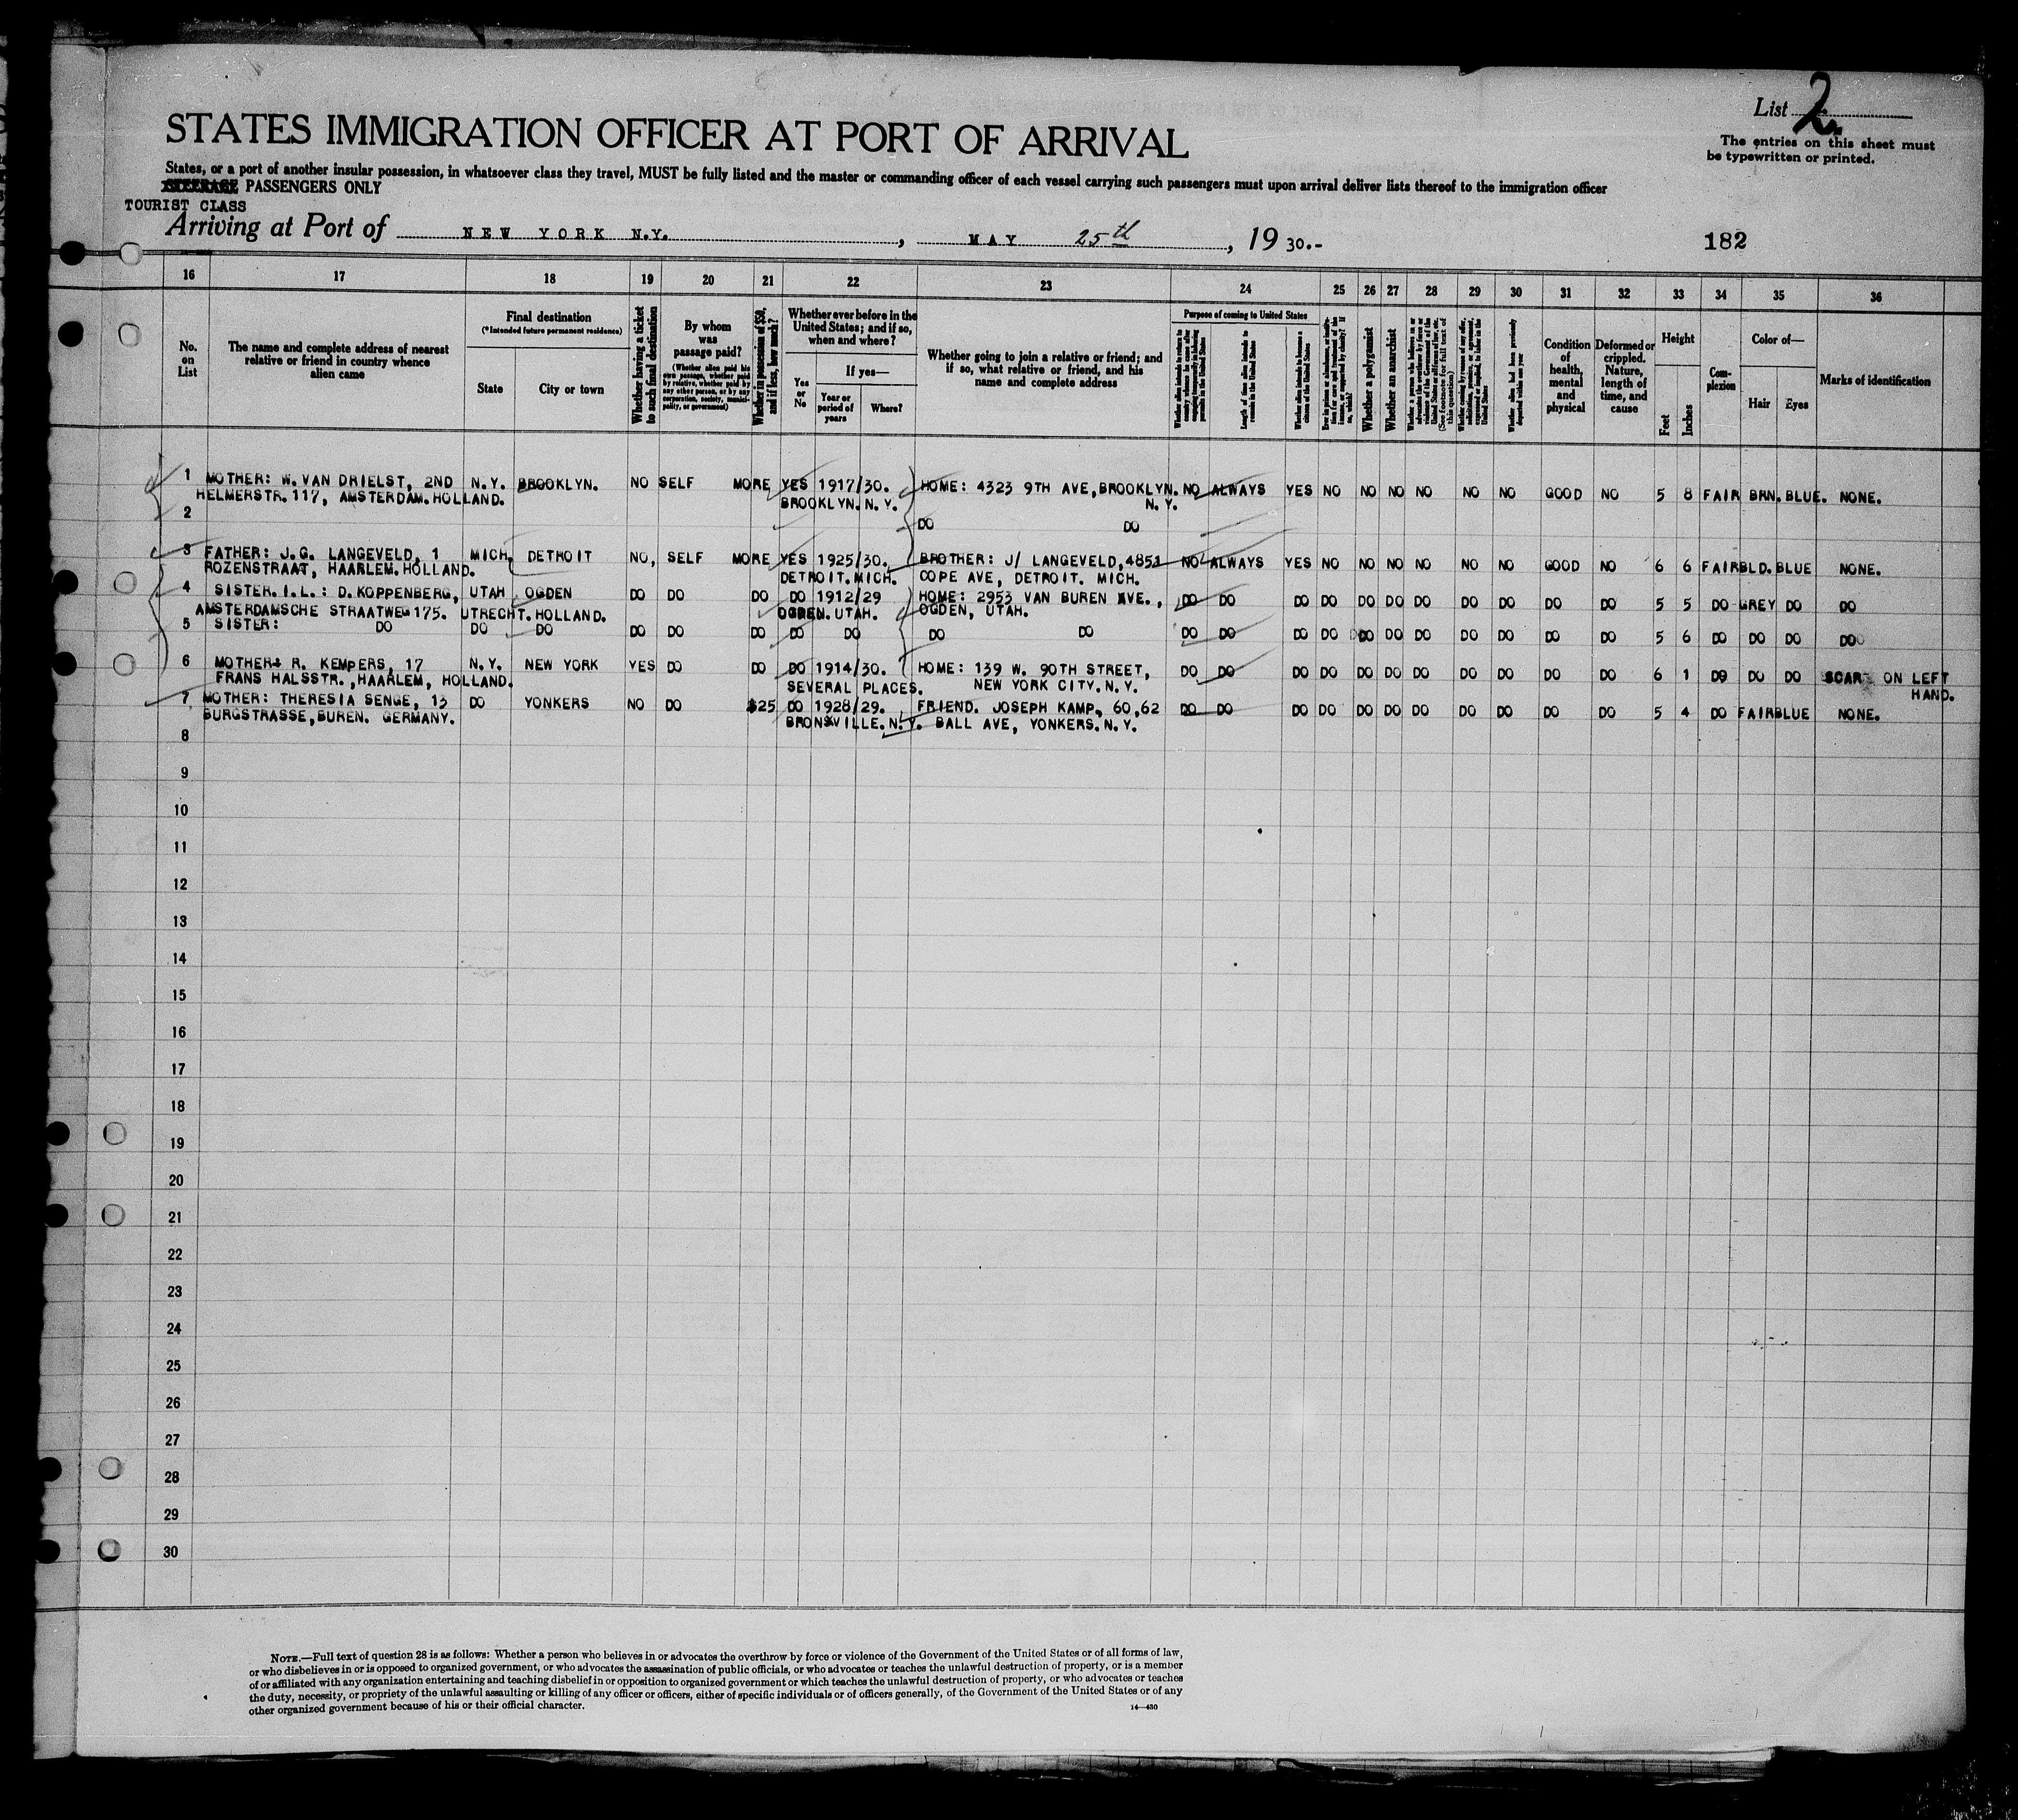 List 2
The entries on this sheet must
be typewritten or printed.
STATES IMMIGRATION OFFICER AT PORT OF ARRIVAL
States, or a port of another insular possession, in whatsoever class they travel, MUST be fully listed and the master or commanding officer of each vessel carrying such passengers must upon arrival deliver lists thereof to the immigration officer
STEERAGE PASSENGERS ONLY
TOURIST CLASS
Arriving at Port of NEW YORK N.Y., MAY 25th, 19 30.-
182
16 17 18 19 20 21 22 23 24 25 26 27 28 29 30 31 32 33 34 35 36
No. on List
The name and complete address of nearest relative or friend in country whence alien came
Final destination
(*Intended future permanent residence)
State
City or town
Whether having a ticket to such final destination
By whom was passage paid?
(Whether alien paid his own passage, whether paid by relative, whether paid by any other person, or by any corporation, society, municipality, or government)
Whether in possession of $50, and if less, how much?
Whether ever before in the United States; and if so, when and where?
Yes or No
If yes—
Year or period of years
Where?
Whether going to join a relative or friend; and if so, what relative or friend, and his name and complete address
Purpose of coming to United States
Length of time alien intends to remain in the United States
Whether alien intends to become a citizen of the United States
Whether a polygamist
Whether an anarchist
Whether alien had been previously deported within one year
Condition of health, mental and physical
Deformed or crippled. Nature, length of time, and cause
Height
Feet
Inches
Complexion
Color of—
Hair
Eyes
Marks of identification
1 MOTHER: W. VAN DRIELST, 2ND N.Y. BROOKLYN. NO SELF MORE YES 1917/30. HOME: 4323 9TH AVE, BROOKLYN. NO ALWAYS YES NO NO NO NO NO NO GOOD NO 5 8 FAIR BRN. BLUE. NONE.
HELMERSTR. 117, AMSTERDAM. HOLLAND. BROOKLYN. N.Y. N.Y.
2 DO DO
3 FATHER: J.G. LANGEVELD, 1 MICH. DETROIT NO, SELF MORE YES 1925/30. BROTHER: J/ LANGEVELD, 4851 NO ALWAYS YES NO NO NO NO NO NO GOOD NO 6 6 FAIR BLD. BLUE NONE.
ROZENSTRAAT, HAARLEM. HOLLAND. DETROIT. MICH. COPE AVE, DETROIT. MICH.
4 SISTER. I.L.: D. KOPPENBERG, UTAH OGDEN DO DO DO DO 1912/29 HOME: 2953 VAN BUREN AVE., DO DO DO DO DO DO DO DO DO DO DO 5 5 DO GREY DO DO
AMSTERDAMSCHE STRAATWEG 175. UTRECHT. HOLLAND. OGDEN. UTAH. OGDEN, UTAH.
5 SISTER: DO DO DO DO DO DO DO DO DO DO DO DO DO DO DO DO DO DO DO DO DO 5 6 DO DO DO DO
6 MOTHER: R. KEMPERS, 17 N.Y. NEW YORK YES DO DO DO 1914/30. HOME: 139 W. 90TH STREET, DO DO DO DO DO DO DO DO DO DO DO 6 1 DO DO DO SCAR ON LEFT
FRANS HALSSTR., HAARLEM, HOLLAND. SEVERAL PLACES. NEW YORK CITY. N.Y. HAND.
7 MOTHER: THERESIA SENGE, 13 DO YONKERS NO DO $25 DO 1928/29. FRIEND. JOSEPH KAMP, 60,62 DO DO DO DO DO DO DO DO DO DO DO 5 4 DO FAIR BLUE NONE.
BURGSTRASSE, BUREN. GERMANY. BRONXVILLE. N.Y. BALL AVE, YONKERS. N.Y.
8
9
10
11
12
13
14
15
16
17
18
19
20
21
22
23
24
25
26
27
28
29
30
NOTE.—Full text of question 28 is as follows: Whether a person who believes in or advocates the overthrow by force or violence of the Government of the United States or of all forms of law,
or who disbelieves in or is opposed to organized government, or who advocates the assassination of public officials, or who advocates or teaches the unlawful destruction of property, or is a member
of or affiliated with any organization entertaining and teaching disbelief in or opposition to organized government or which teaches the unlawful destruction of property, or who advocates or teaches
the duty, necessity, or propriety of the unlawful assaulting or killing of any officer or officers, either of specific individuals or of officers generally, of the Government of the United States or of any
other organized government because of his or their official character.
14—430